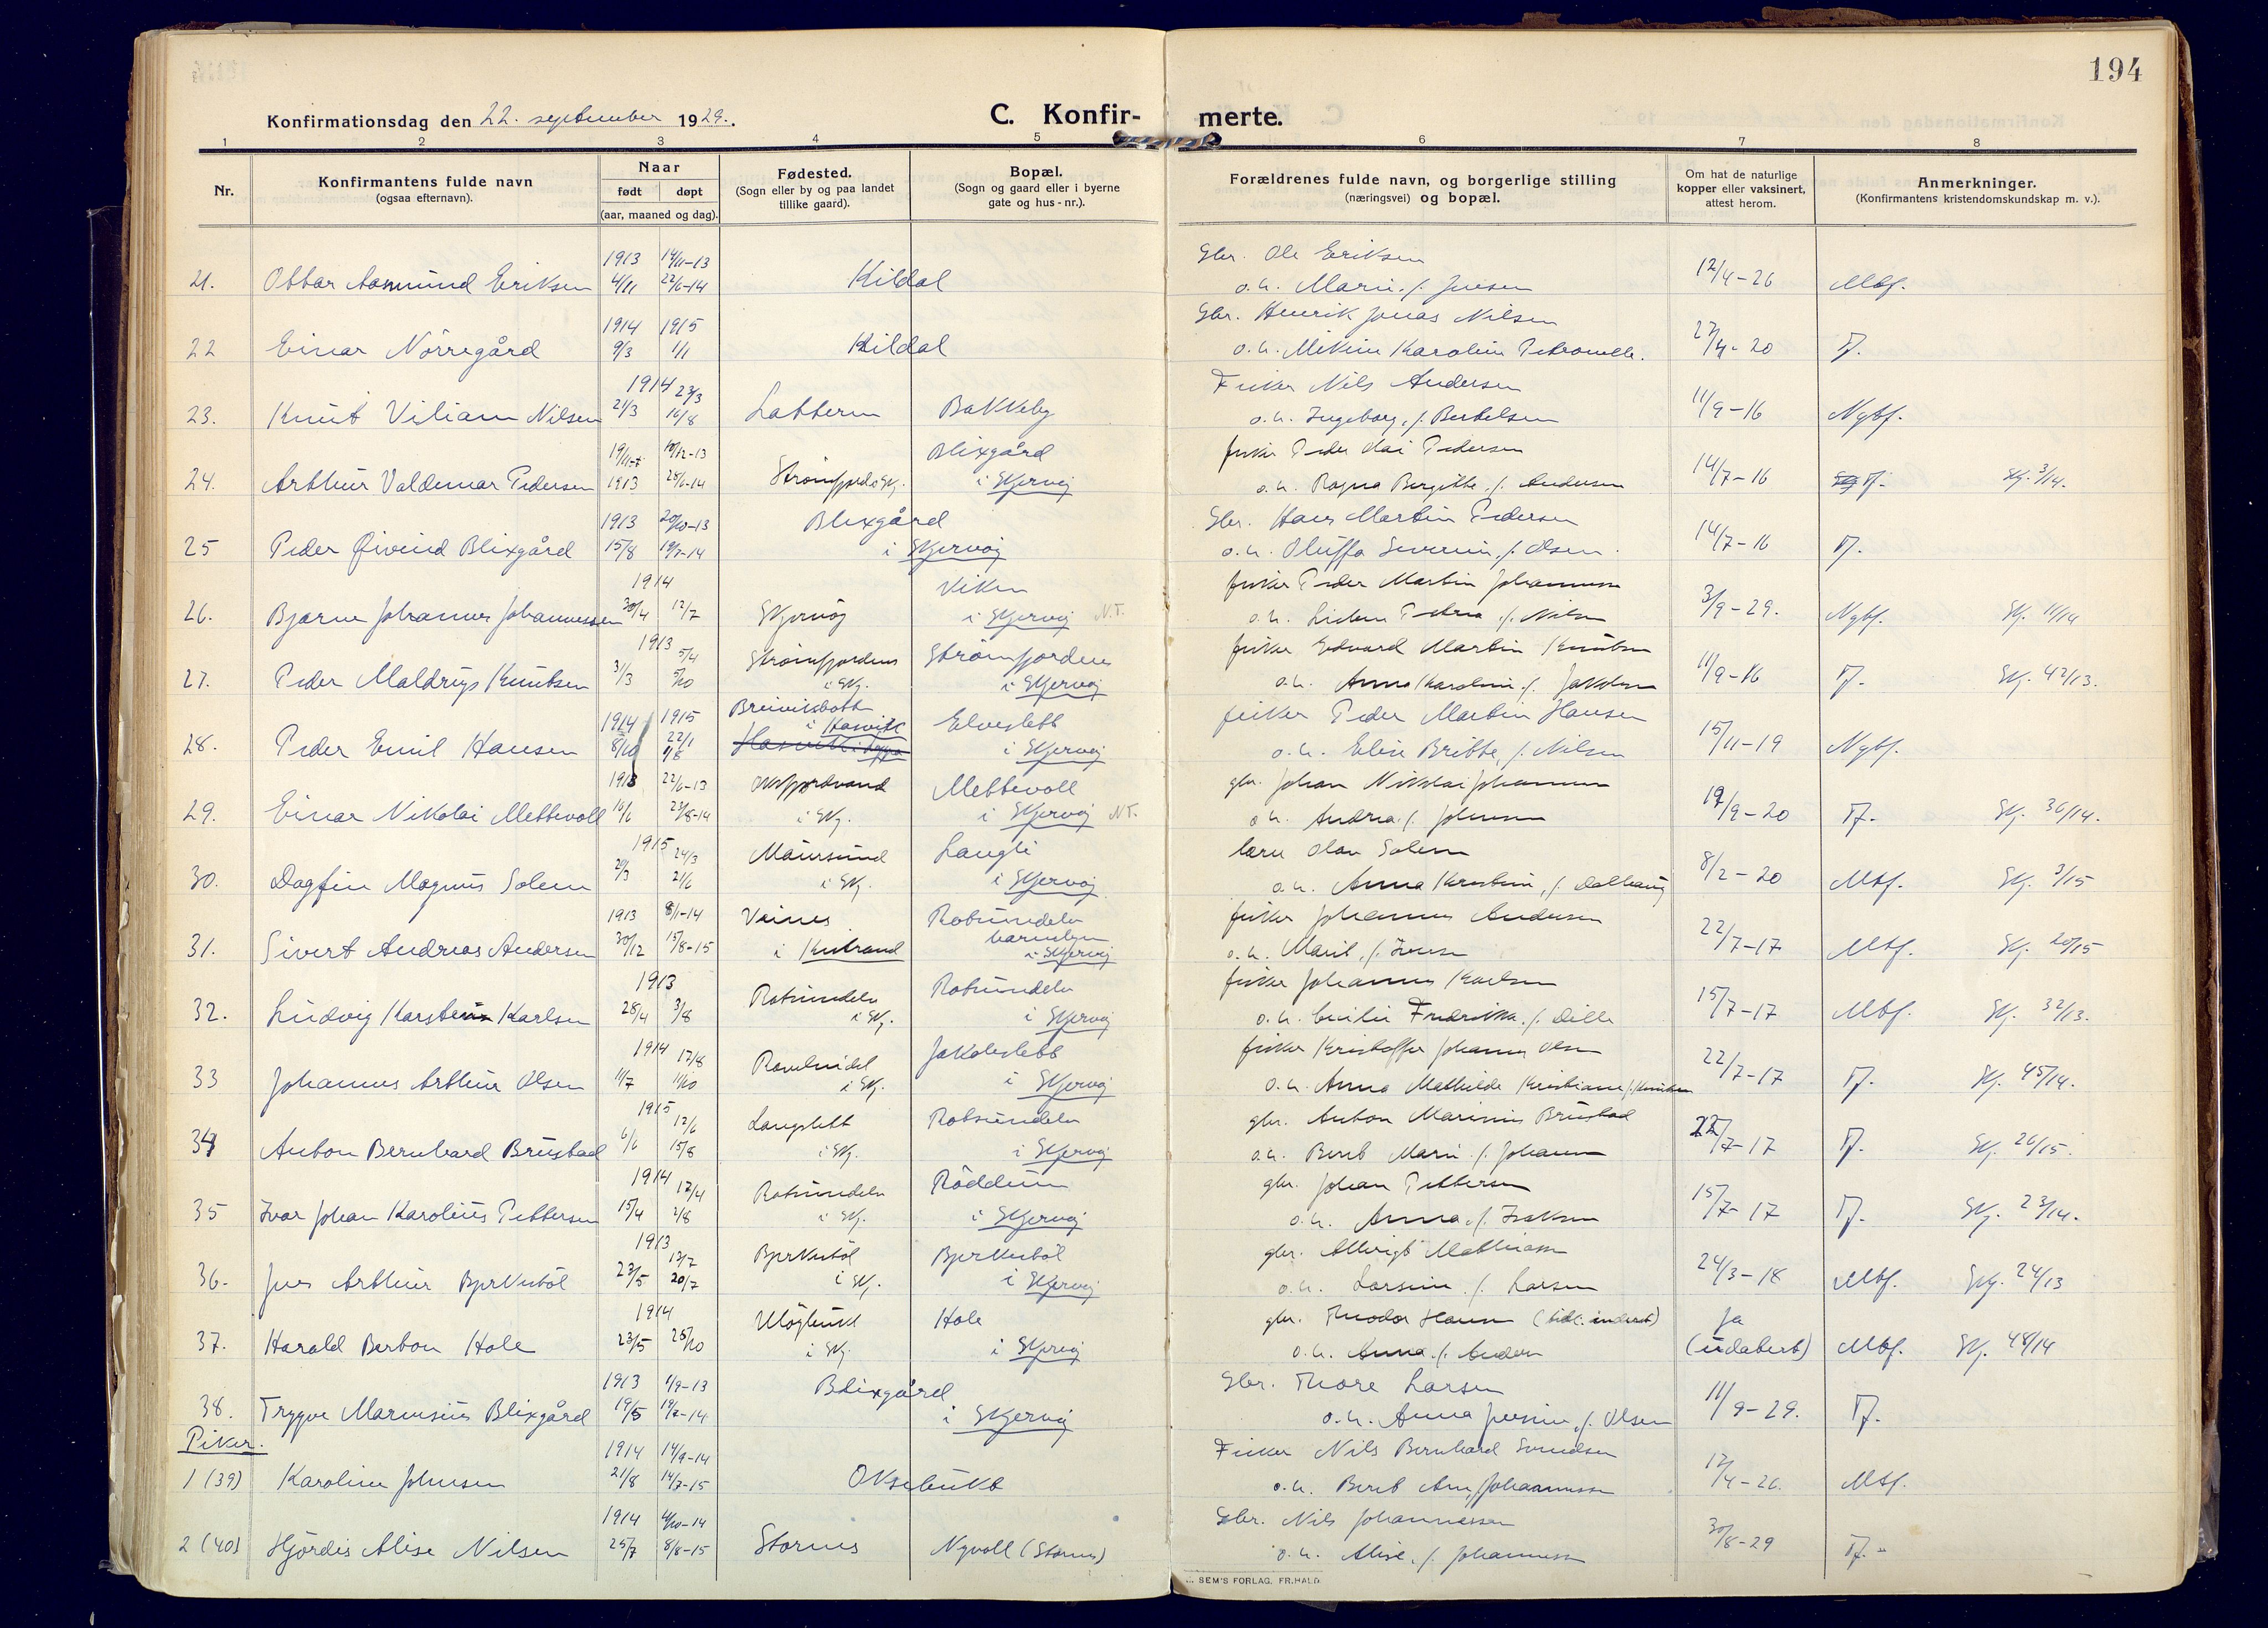 194
Konfirmationsdag den 22. september 1929.
C. Konfir-
merte.
1 2 3 4 5 6 7 8
Nr.
Konfirmantens fulde navn
(ogsaa efternavn).
Naar
født døpt
(aar, maaned og dag).
Fødested.
(Sogn eller by og paa landet
tillike gaard).
Bopæl.
(Sogn og gaard eller i byerne
gate og hus-nr.).
Forældrenes fulde navn, og borgerlige stilling
(næringsvei) og bopæl.
Om hat de naturlige
kopper eller vaksinert,
attest herom.
Anmerkninger.
(Konfirmantens kristendomskundskap m. v.).
1913 14/11-13 Gbr. Ole Eriksen
21. Ottar Aasmund Eriksen 4/11 22/6-14 Kildal o.h. Marie f. Jensen 12/4-26 Mtf.
1914 1915 Gbr. Henrik Jonas Nilsen
22 Einar Nörregård 9/3 1/1 Kildal o.h. Karoline Petronelle. 27/4-20 Tf.
1914 23/3 Fisker Nils Andersen
23. Knut Viliam Nilsen 21/3 16/8 Latteren Bakkeby o.h. Ingeborg, f. Bertelsen 11/9-16 Ngtf.
19/11 10/12-13 Blixgård fisker Peder Pedersen
24. Arthur Valdemar Pedersen 1913 28/6-14 Strømfjord Skj. i Skjervøj o.h. Ragna Birgitte, f. Andersen 14/7-16 Tf. Skj. 3/14.
1913 20/10-13 Blixgård Gbr. Hans Martin Pedersen
25 Peder Øivind Blixgård 15/8 19/7-14 i Skjervøj o.h. Oluffa Severine, f. Olsen. 14/7-16 Tf.
1914 Viken fisker Peder Martin Johannessen
26. Bjarne Johannes Johannessen 30/4 12/7 Skjervøj i Skjervøj N.T. o.h. Petrea f. Nilsen 3/9-29. Ngtf. Skj. 11/14
1913 5/4 Strømfjorden Strømfjorden fisker Edvard Martin Knutsen
27. Peder Maldrup Knutsen 31/3 5/10 i Skj. i Skjervøj o.h. Anna Karoline f. Jakobsen 11/9-16 Tf. Skj. 42/13.
1914 1915 Breivikbotn i Hasvik Elveslett fisker Peder Martin Hansen
28. Peder Emil Hansen 8/10 22/1 1/8 i Skjervøj o.h. Elise Britte, f. Nilsen 15/11-19 Ngtf.
1913 22/6-13 Oksfjordvand Mettevoll gbr. Johan Nikolai Johansen
29. Einar Nikolai Mettevoll 16/6 23/8-14 i Skj. i Skjervøj N.T. o.h. Andrea f. Johnsen 19/9-20 Tf. Skj. 36/14.
1915 24/3 Maursund Langli lærer Olav Solem
30. Dagfin Magnus Solem 20/3 2/6 i Skj. i Skjervøj o.h. Anna Kristine, f. Dalhaug 8/2-20 Mtf. Skj. 3/15
1913 8/1-14 Veines Rotsundelv barnehjem fisker Johannes Andersen
31. Sivert Andreas Andersen 30/12 15/8-15 i Kistrand i Skjervøj o.h. Marit, f. Iversen 22/7-17 Mtf. Skj. 20/15
1913 Rotsundelv Rotsundelv fisker Johannes Karlsen
32. Ludvig Karsten Karlsen 28/4 3/8 i Skj. i Skjervøj o.h. Cecilie Fredrikka f. Dille 15/7-17 Mtf. Skj. 32/13.
1914 12/8 Ravelseidet Jakobslett fisker Kristoffer Johannes Olsen
33 Johannes Arthur Olsen 11/7 11/10 i Skj. i Skjervøj o.h. Anna Mathilde Kristiane f. Knutsen 22/7-17 Tf. Skj. 45/14.
1915 12/6 Langslett Rotsundelv gbr. Anton Marinius Brustad
34 Anton Bernhard Brustad 6/6 15/8 i Skj. i Skjervøj o.h. Berit Marie f. Johansen 22/7-17 Tf. Skj. 26/15.
1914 12/4 Rotsundelv Röddum gbr. Johan Pettersen
35 Ivar Johan Karolius Pettersen 15/4 2/8 i Skj. i Skjervøj o.h. Anna, f. Isaksen 15/7-17 Tf. Skj. 23/14.
1913 13/7 Bjerkestöl Bjerkestöl gbr. Mathiassen
36. Jens Arthur Bjerkestöl 23/5 20/7 i Skj. i Skjervøj o.h. Larsine f. Larsen 24/3-18 Mtf. Skj. 24/13
1914 Uløybukt Hole gbr. Theodor Hansen
37. Harald Berton Hole 23/5 25/10 i Skj. i Skjervøj o.h. Anna f. Andersen Ja (udatert) Mtf. Skj. 48/14
1913 1/9-13 Blixgård Gbr. Thore Larsen
38. Trygve Marensius Blixgård 19/5 19/2-14 i Skjervøj o.h. Anna Jensine, f. Olsen 11/9-29. Tf.
Piker.
1914 14/9-14 Fisker Nils Bernhard Svendsen
1 (39) Karoline Johnsen 21/8 14/7-15 Oksebukt o.h. Berit Ane Johannessen 12/4-26. Mtf.
1914 4/10-14 Gbr. Nils Johannessen
2 (40) Hjördis Alise Nilsen 25/7 8/8-15 Stornes Nyvoll (Stornes) o.h. Alise, f. Johannessen 30/8-29 Tf.
SEM'S FORLAG, FR.HALD